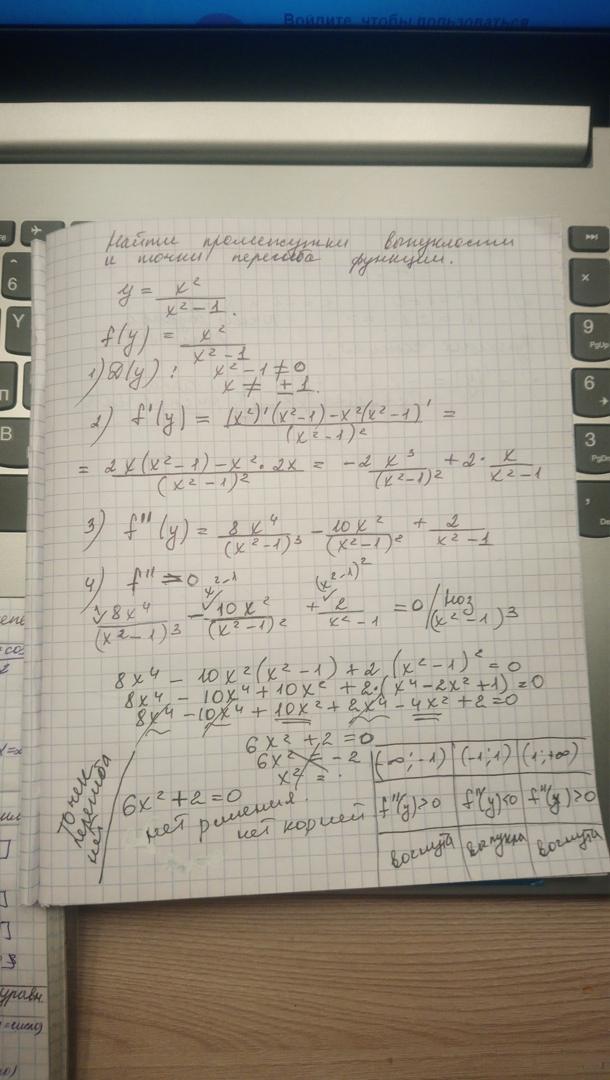 Войдите, чтобы пользоваться
Найти промежутки выпуклости
и точки перегиба функции.
y = x²/(x² - 1).
f(y) = x²/(x² - 1)
1) D(y): x² - 1 ≠ 0
x ≠ ± 1.
2) f'(y) = ((x²)'(x² - 1) - x²(x² - 1)')/(x² - 1)² =
= (2x(x² - 1) - x² · 2x)/(x² - 1)² = -2 x³/(x² - 1)² + 2 · x/(x² - 1)
3) f''(y) = 8x⁴/(x² - 1)³ - 10x²/(x² - 1)² + 2/(x² - 1)
4) f'' = 0
8x⁴/(x² - 1)³ - 10x²/(x² - 1)² + 2/(x² - 1) = 0 / (x² - 1)³
x² - 1
(x² - 1)²
8x⁴ - 10x²(x² - 1) + 2(x² - 1)² = 0
8x⁴ - 10x⁴ + 10x² + 2·(x⁴ - 2x² + 1) = 0
8x⁴ - 10x⁴ + 10x² + 2x⁴ - 4x² + 2 = 0
6x² + 2 = 0
6x² = -2
x² = .
6x² + 2 = 0
нет решения.
нет корней
Точек
перегиба
нет
(-∞; -1) (-1; 1) (1; +∞)
f''(y) > 0 f''(y) < 0 f''(y) > 0
вогнута выпукла вогнута
6
Y
П
B
9
PgUp
6
3
PgDn